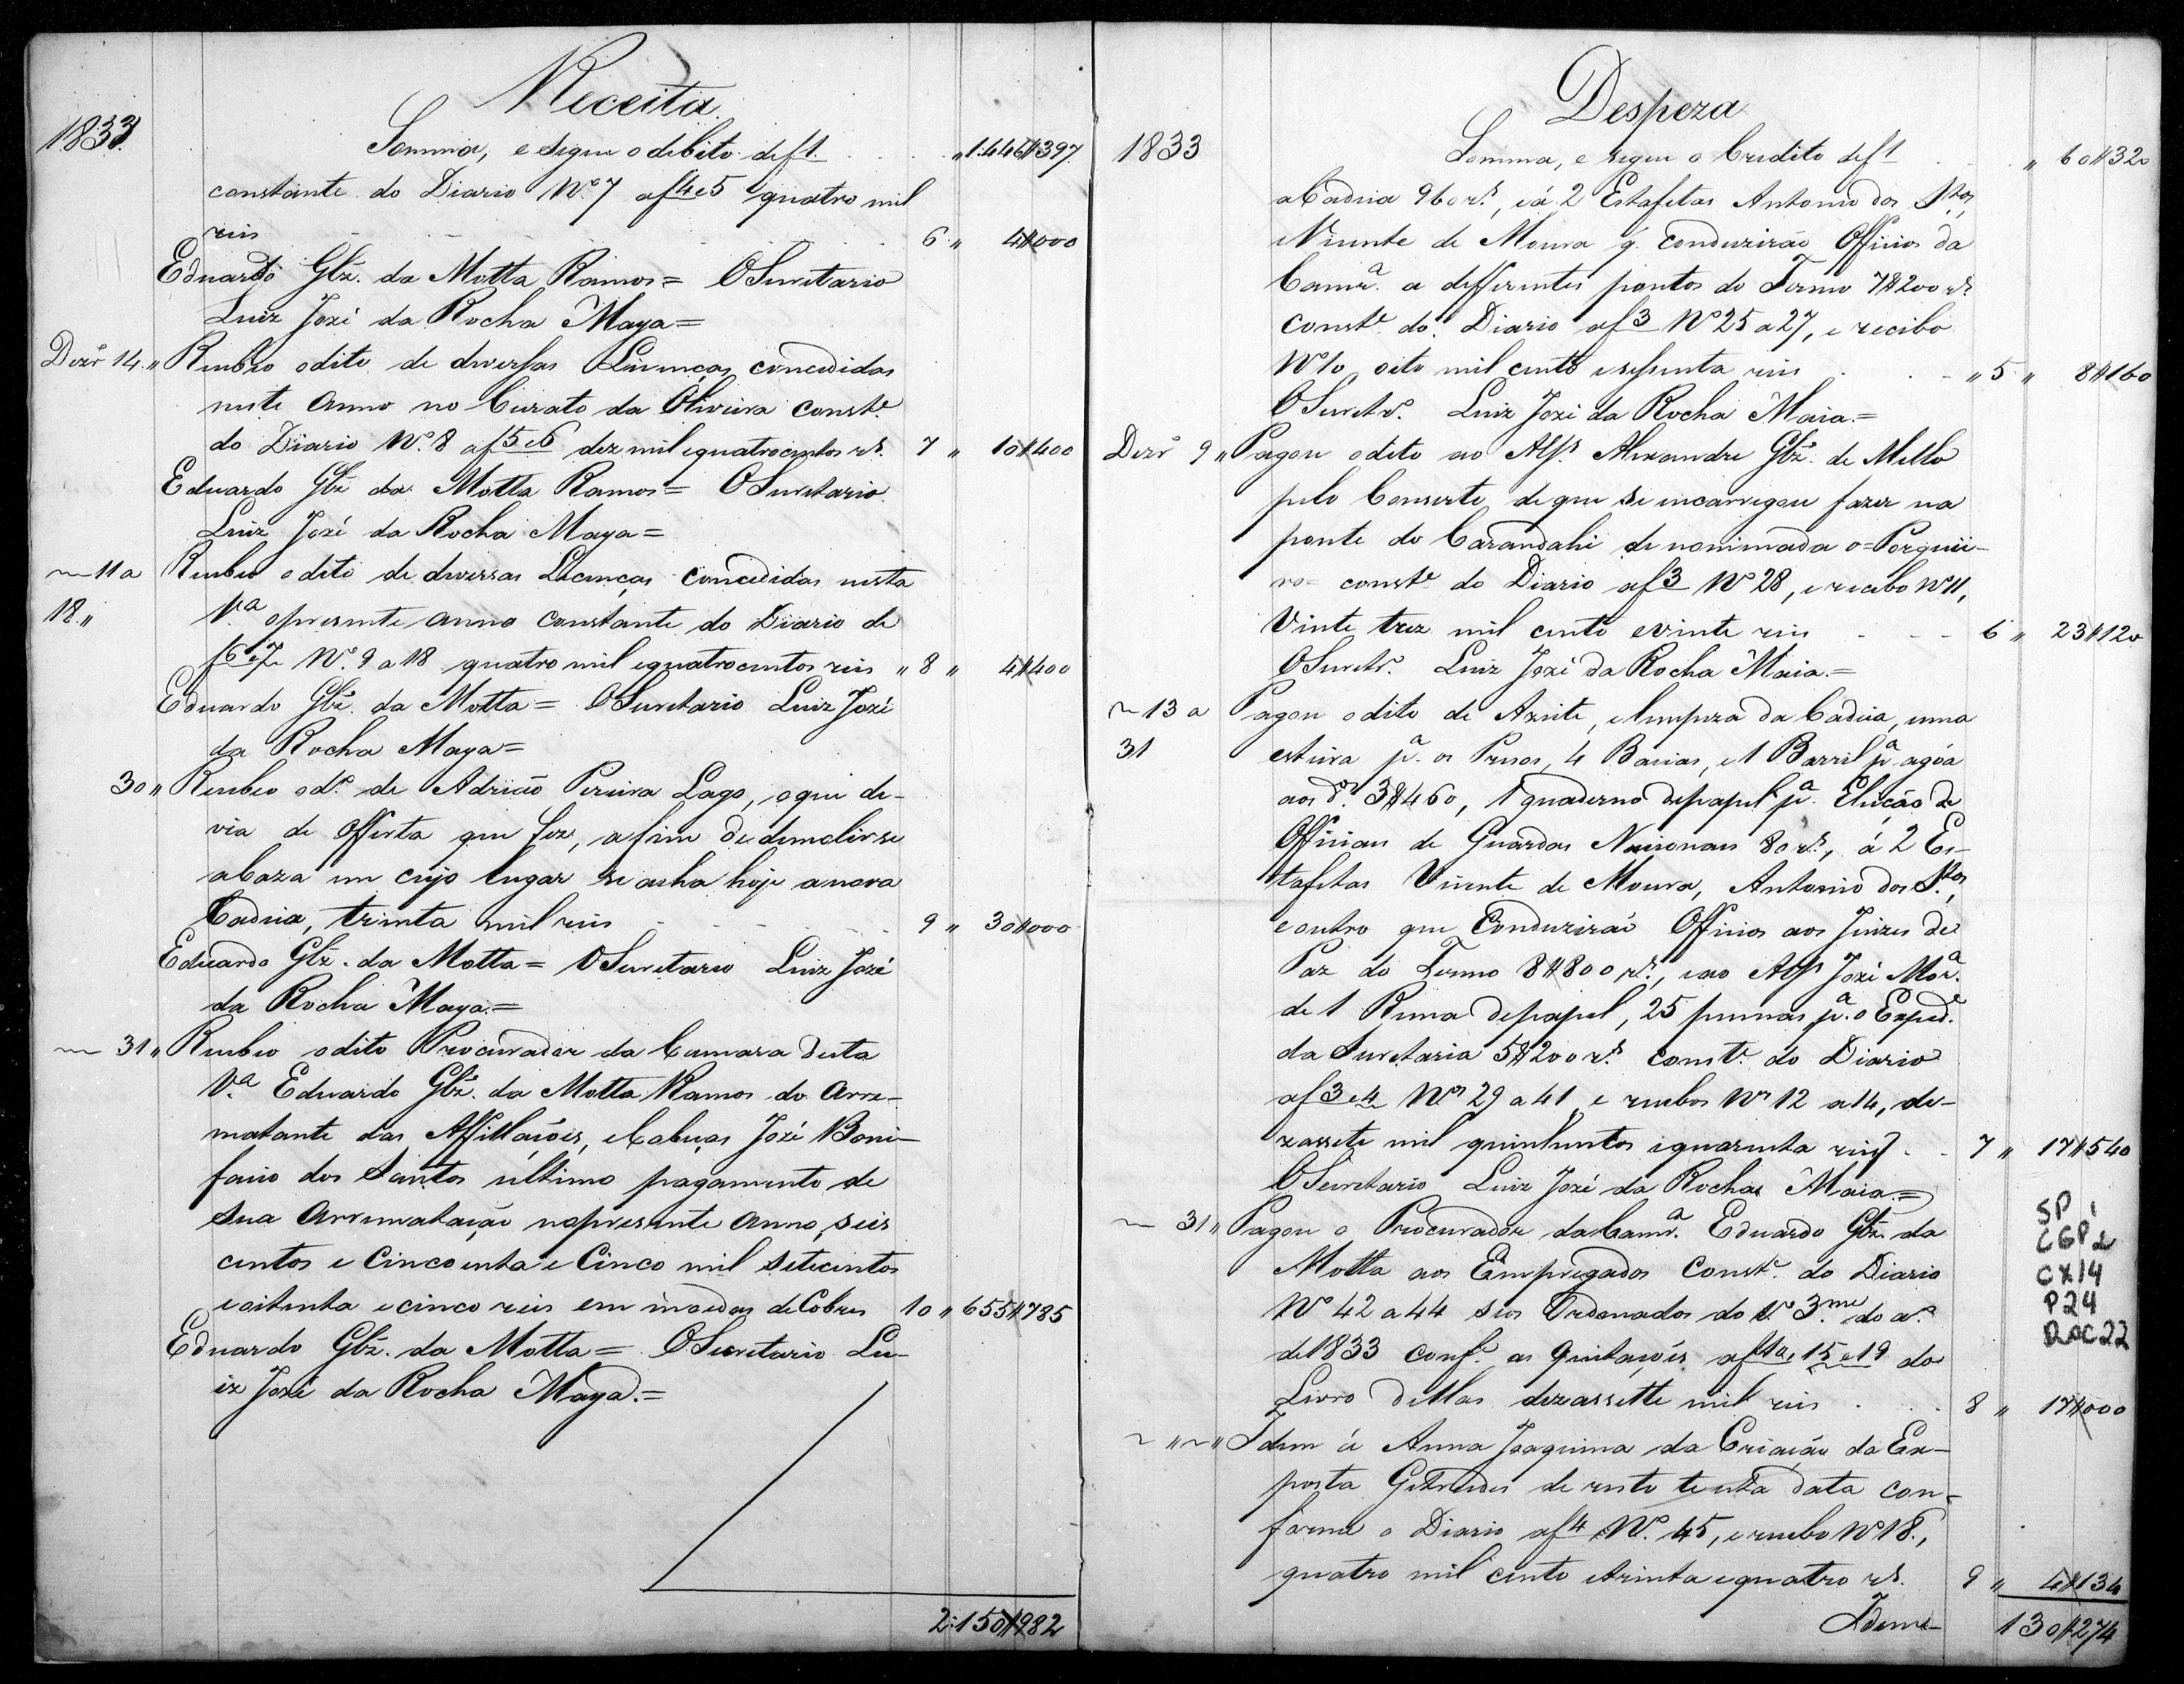 Receita
1833. Somma, e segue o debito def1. . . . . "1:446$397
constante do Diario Nº 7 af4e5 quatro mil
reis 6 " 4$000
Eduardo Glz. da Motta Ramos = O Secretario
Luiz Jozé da Rocha Maya =
Dezrº 14. " Recebeo odito de diversas Licenças concedidas
neste anno no Curato da Oliveira constᵉ
do Diario Nº 8 af5e6 dez mil equatrocentos rs. 7 " 10$400
Eduardo Glz da Motta Ramos = O Secretario
Luiz Jozé da Rocha Maya =
~ 11 a Recebeo odito de diversas Licenças concedidas nesta
18 " Vª opresente anno constante do Diario de
f6e7 Nº 9 a 18 quatro mil equatrocentos reis " 8 " 4$400
Eduardo Glz. da Motta = O Secretario Luiz Jozé
da Rocha Maya =
30 " Recebeo odº de Adrião Pereira Lago, oque de-
via de offerta que fez, afim de demolir se
a Caza em cujo lugar se acha hoje a nova
Cadeia, trinta mil reis 9 " 30$000
Eduardo Glz. da Motta = O Secretario Luiz Jozé
da Rocha Maya. =
~ 31 " Recebeo odito Procurador da Camara desta
Vª Eduardo Glz. da Motta Ramos do Arre-
matante das Affillaçoes, e Cabeças Jozé Boni-
facio dos Santos ultimo pagamento de
sua Arrematação nopresente Anno, seis
centos e Cincoenta e Cinco mil setecentos
e oitenta ecinco reis em moedas de Cobres 10 " 655$785
Eduardo Glz. da Motta = O Secretario Lu-
iz Jozé da Rocha Maya. =
2:150$982
Despeza
1833 Somma, e segue o Credito def1 . . . " 60$320
a Cadeia 960 rs., e á 2 Estafetas Antonio dos Stos,
e Vicente de Moura q. conduzirão Officios da
Camrª a differentes pontos do Termo 7$200 rs.
constᵉ do Diario af3 Nº 25 a 27, e recibo
Nº 10 oito mil cento e sessenta reis " 5 " 8$160
O Secretrº Luiz Jozé da Rocha Maia. =
Dezrº 9 " Pagou odito ao Alfs Alexandre Glz. de Mello
pelo Conserto de que se encarregou fazer na
ponte do Carandahi denominada o = Porquei-
ro = constᵉ do Diario af3 Nº 28, e recibo Nº 11,
Vinte trez mil cento evinte reis 6 " 23$120
O Secretrº Luiz Jozé da Rocha Maia. =
~ 13 a Pagou odito de Azeite, e limpeza da Cadeia, uma
31 esteira pª os Presos, 4 Bacias, e 1 Barril pª agoa
aos dºs 3$460, 1 quaderno depapel pª Eleição de
Officiaes de Guardas Nacionaes 80 rs., á 2 Es-
tafetas Vicente de Moura, Antonio dos Stos,
e outro que Conduzirão Officios aos Juizes de
Paz do Termo 8$800 rs., e ao Alfs Jozé Morª
de 1 Resma depapel, 25 pennas pª o Expedᵉ
da Secretaria 5$200 rs. constᵉ do Diario
af3e4 Nos 29 a 41 e recibos Nos 12 a 14, de-
zassete mil quinhentos equarenta reis 7 " 17$540
O Secretario Luiz Jozé da Rocha Maia. =
~ 31 " Pagou o Procurador da Camrª Eduardo Glz. da
Motta aos Empregados Constᵉ do Diario
Nº 42 a 44 seos Ordenados do 3.me do aº
de 1833 confᵉ as quitaçoes 15 e 19 do
Livro dellas dezassette mil reis 8 " 17$000
~ " ~ " Idem á Anna Joaquina da Criação da Ex-
posta de resto te esta data con-
forme o Diario af4 Nº 45, e recibo Nº 18.,
quatro mil cento etrinta equatro rs. 9 " 4$134
Idem 130$274
SP 1
CGP 2
CX14
P24
DOC22